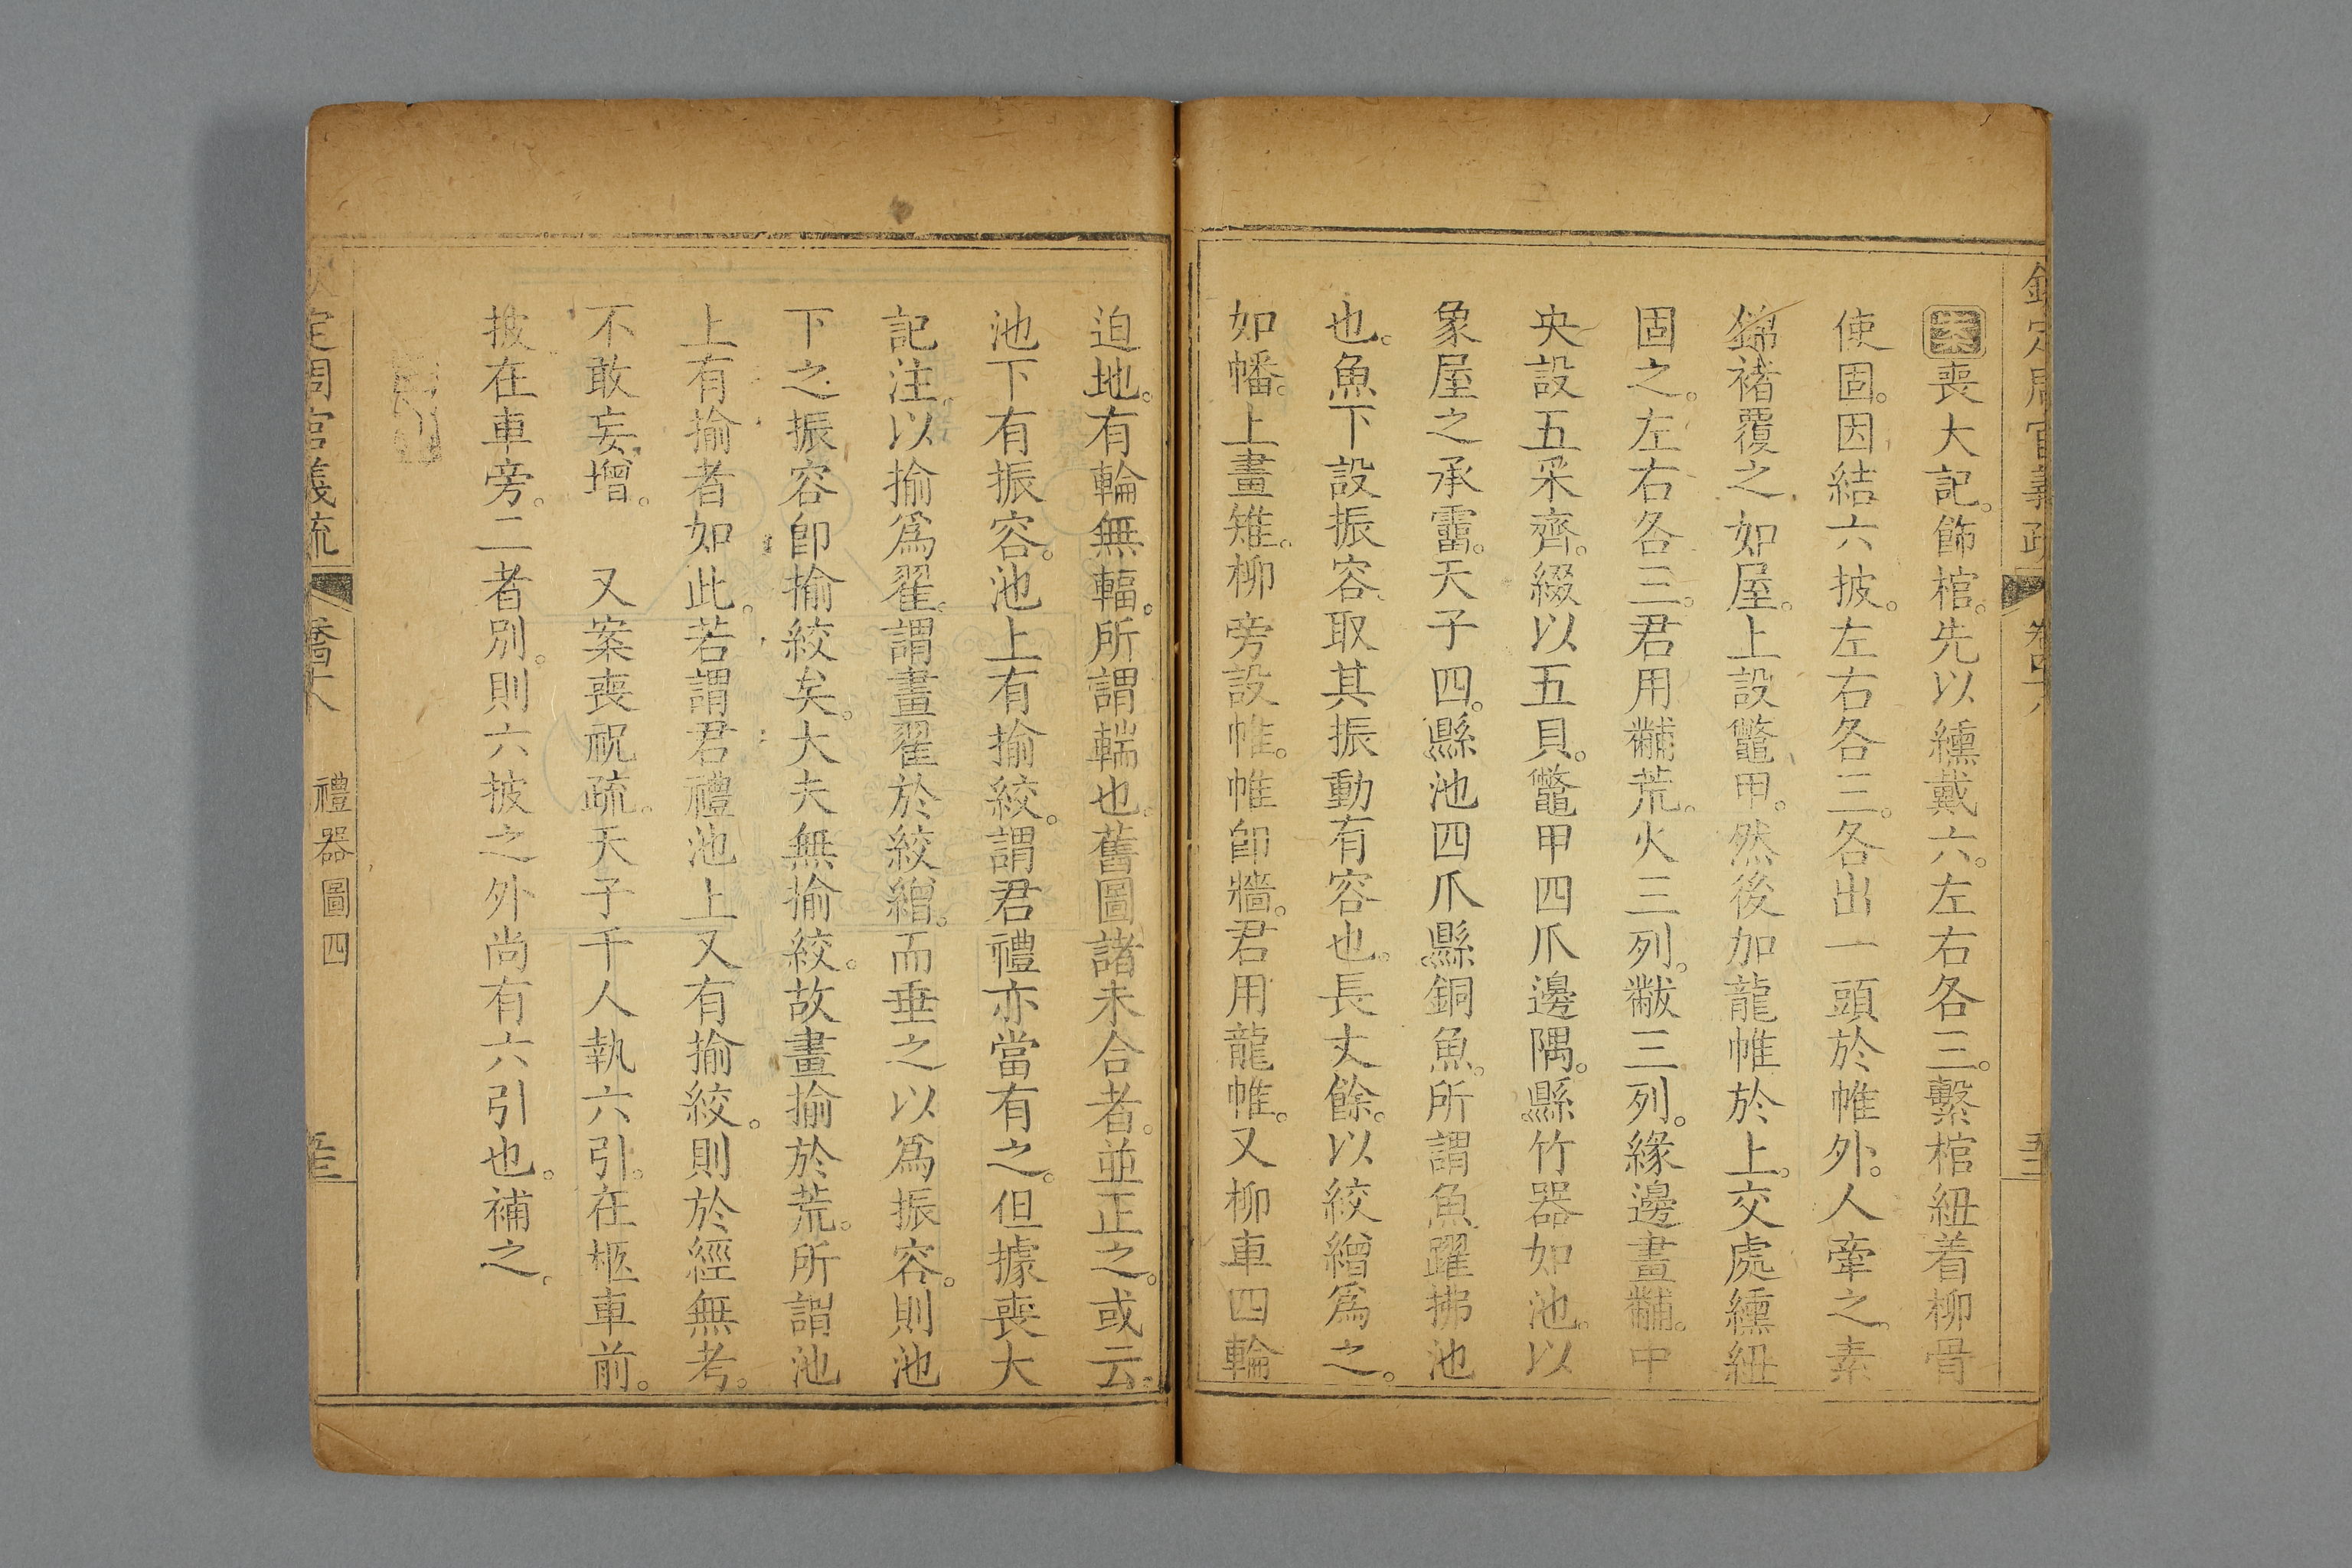 欽定周官義疏 卷四十八 五三
案喪大記。飾棺。先以纁戴六。左右各三。繫棺紐着柳骨
使固。因結六披。左右各三。各出一頭於帷外。人牽之。素
錦褚覆之如屋。上設鼈甲。然後加龍帷於上。交處纁紐
固之。左右各三。君用黼荒。火三列。黻三列。緣邊畫黼。中
央設五采齊。綴以五貝。鼈甲四爪邊隅。縣竹器如池。以
象屋之承霤。天子四。縣池四爪縣銅魚。所謂魚躍拂池
也。魚下設振容取其振動有容也。長丈餘。以絞繒爲之。
如幡。上畫雉。柳旁設帷。帷卽牆。君用龍帷。又柳車四輪
迫地。有輪無輻。所謂輲也。舊圖諸未合者。並正之。或云。
池下有振容。池上有揄絞。謂君禮亦當有之。但據喪大
記注。以揄爲翟。謂畫翟於絞繒。而垂之以爲振容。則池
下之振容卽揄絞矣。大夫無揄絞。故畫揄於荒。所謂池
上有揄者如此。若謂君禮池上又有揄絞。則於經無考。
不敢妄增。 又案喪祝疏。天子千人執六引。在柩車前。
披在車旁。二者別。則六披之外尚有六引也。補之。
定周官義疏 禮器圖四